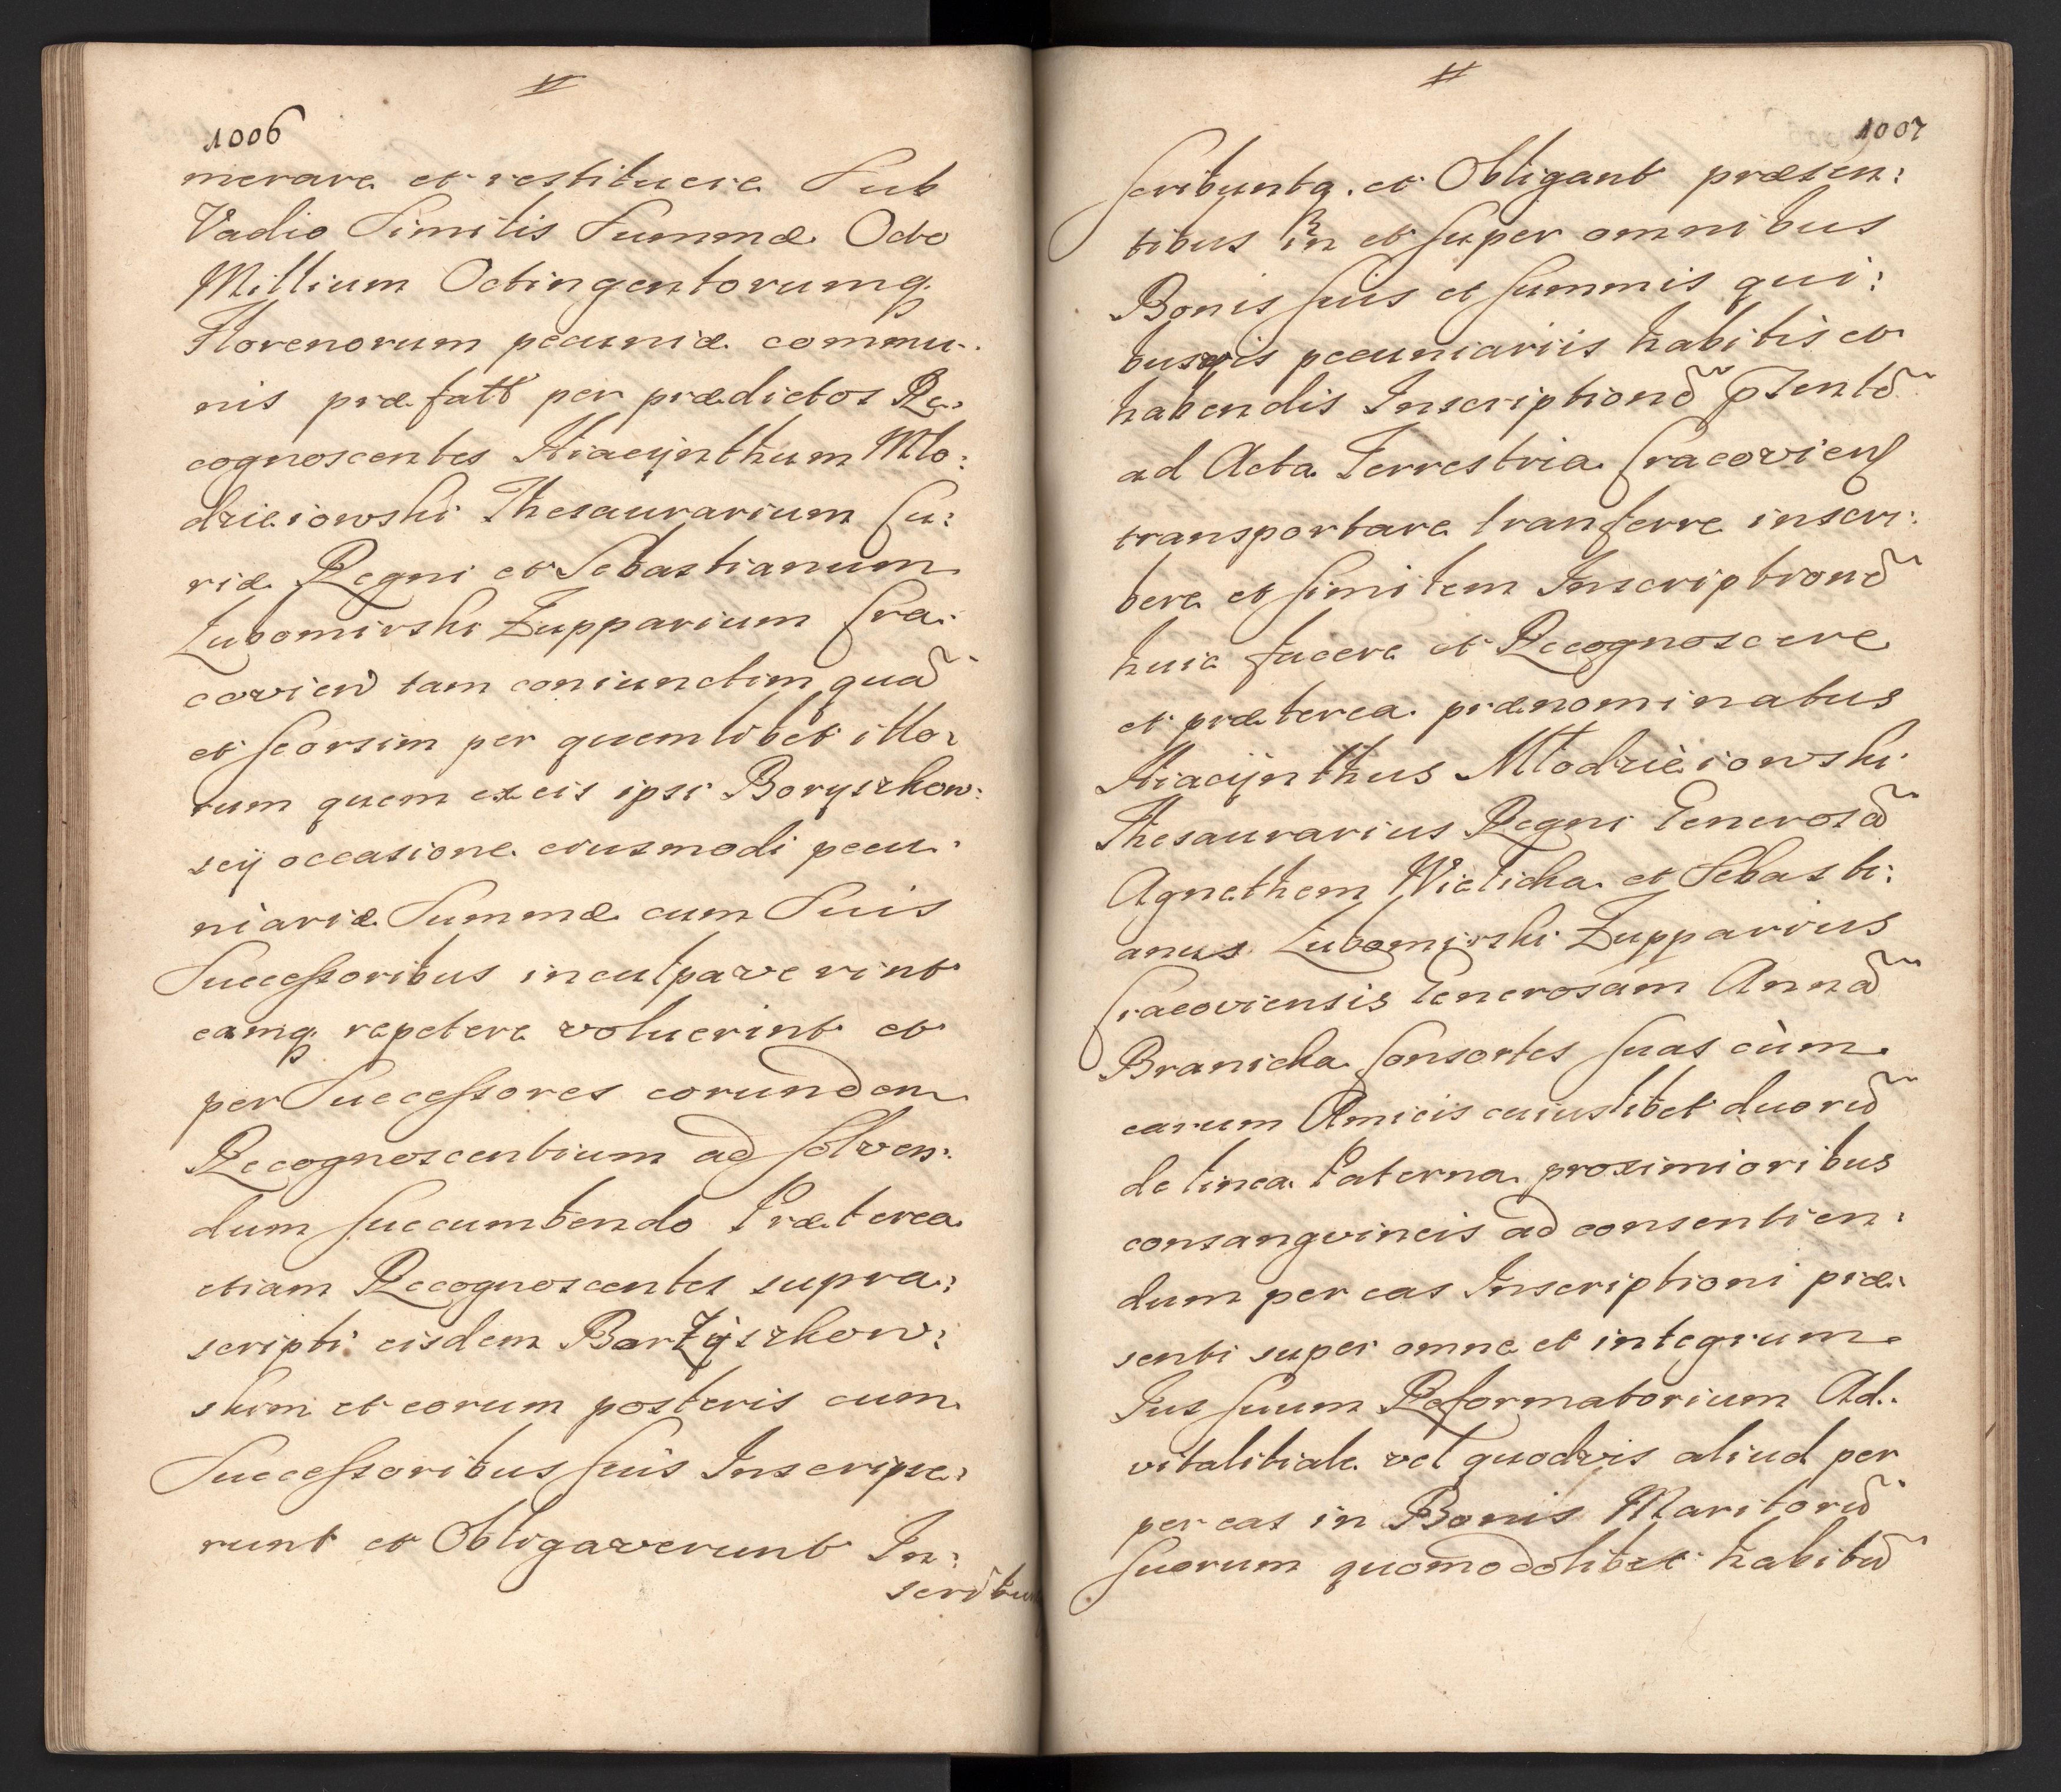 1006
merare et restituere Sub
Vadio Similis Summæ Octo
Millium Octingentorumq.
Florenorum pecuniæ commu:
nis præfatt per prædictos Re:
cognoscentes Hiacynthum Mło:
dzieiowski Thesaurarium Cu:
riæ Regni et Sebastianum
Lubomirski Zupparium Cra:
covien̄ tam coniunctim quā
et seorsim per quemlibet illo:
rum quem ex eis ipsi Boryszkow:
scij occasione eiusmodi pecu:
niariæ Summæ cum Suis
Successoribus inculpaverint
eamq. repetere voluerint et
per Successores eorundem
Recognoscentium ad solven:
dum succumbendo Præterea
etiam Recognoscentes supra:
scripti eisdem Barzyszkow:
skim et eorum posteris cum
Successoribus suis Inscripse:
runt et Obligaverunt In:
scribun
1007
scribuntq. et Obligant præsen:
tibus in et super omnibus
Bonis suis et summis qui:
busvis pecuniariis habitis et
habendis Inscriptionē p̄sentē
ad Acta Terrestria Cracoviens
transportare tranferre inscri:
bere et similem Inscriptionē
huic facere et Recognoscere
et præterea prænominatus
Hiacynthus Młodzieiowski
Thesaurarius Regni Generosā
Agnethem Wielicka et Sebasti:
anus Lubomirski Zupparius
Cracoviensis Generosam Annā
Branicka Consortes suas cùm
earum Amicis cuiuslibet duorū
de linea Paterna proximioribus
consangvineis ad consentien:
dum per eas Inscriptioni præ:
senti super omne et integrum
Jus suum Reformatorium Ad:
vitalitiale vel quodvis aliud per
per eas in Bonis Maritorū
suorum quomodolibet habitū